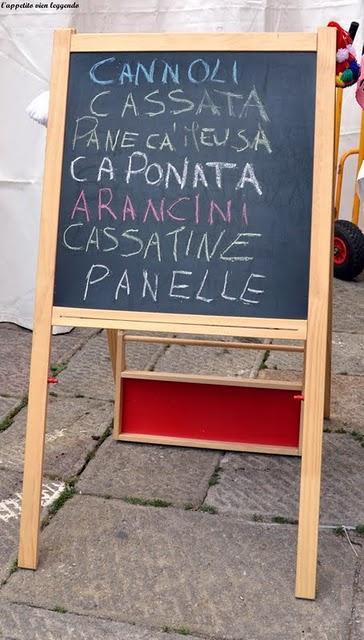 L'appetito vien leggendo
CANNOLI
CASSATA
PANE CA' MEUSA
CAPONATA
ARANCINI
CASSATINE
PANELLE